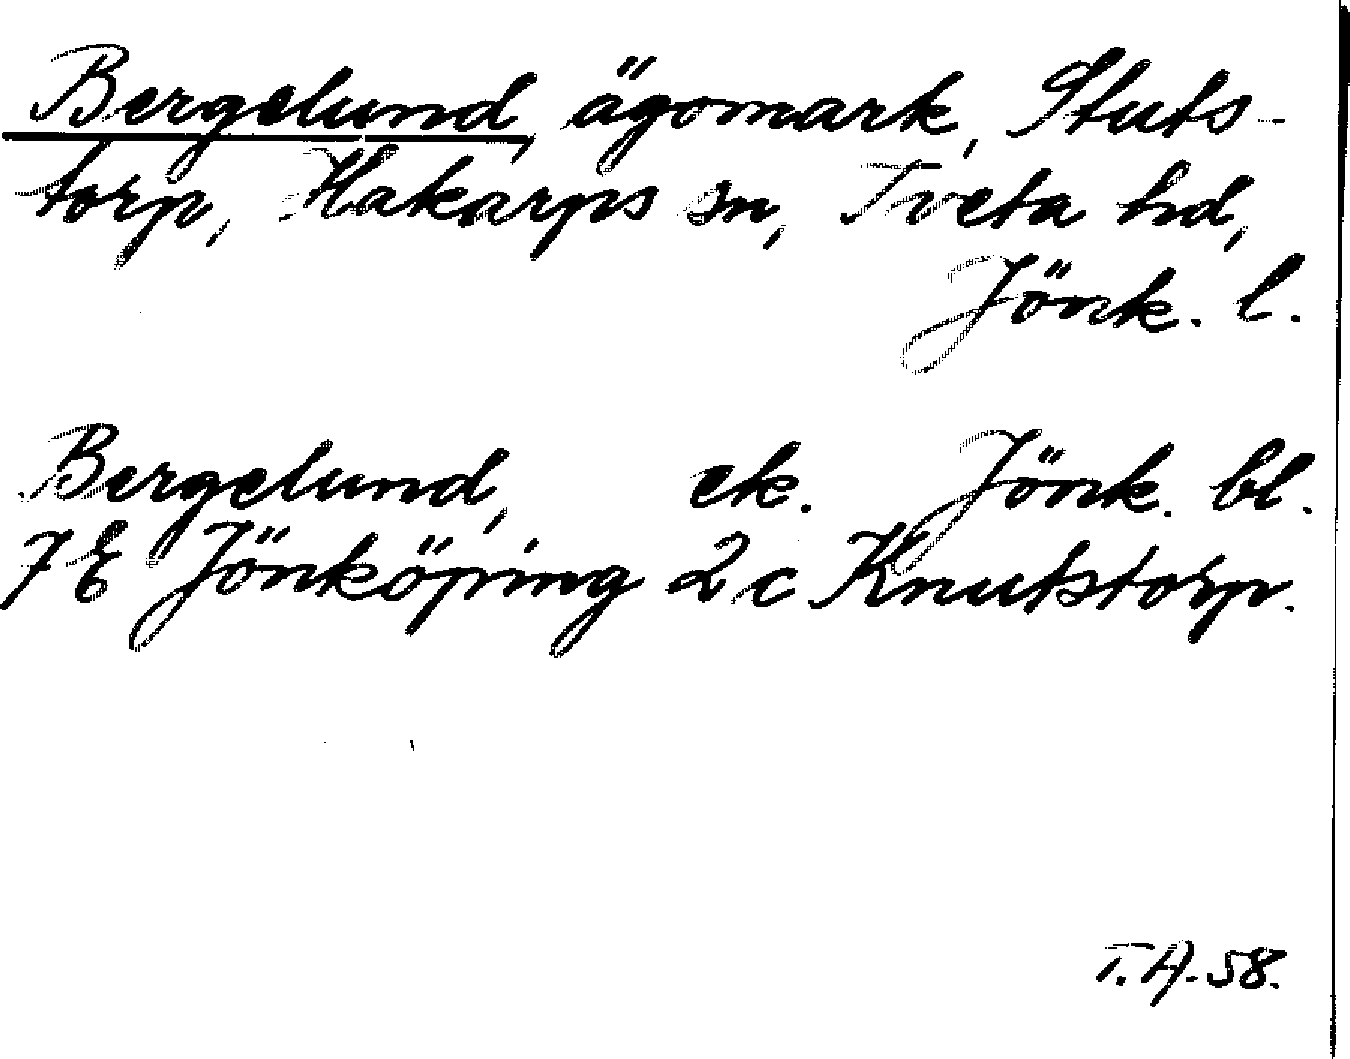 Bergelund, ägomark, Stuts-
torp, Hakarps sn, Tveta hd,
Jönk. l.
Bergelund, ek. Jönk. bl.
7 E Jönköping 2 c Knutstorp.
T.A. 58.